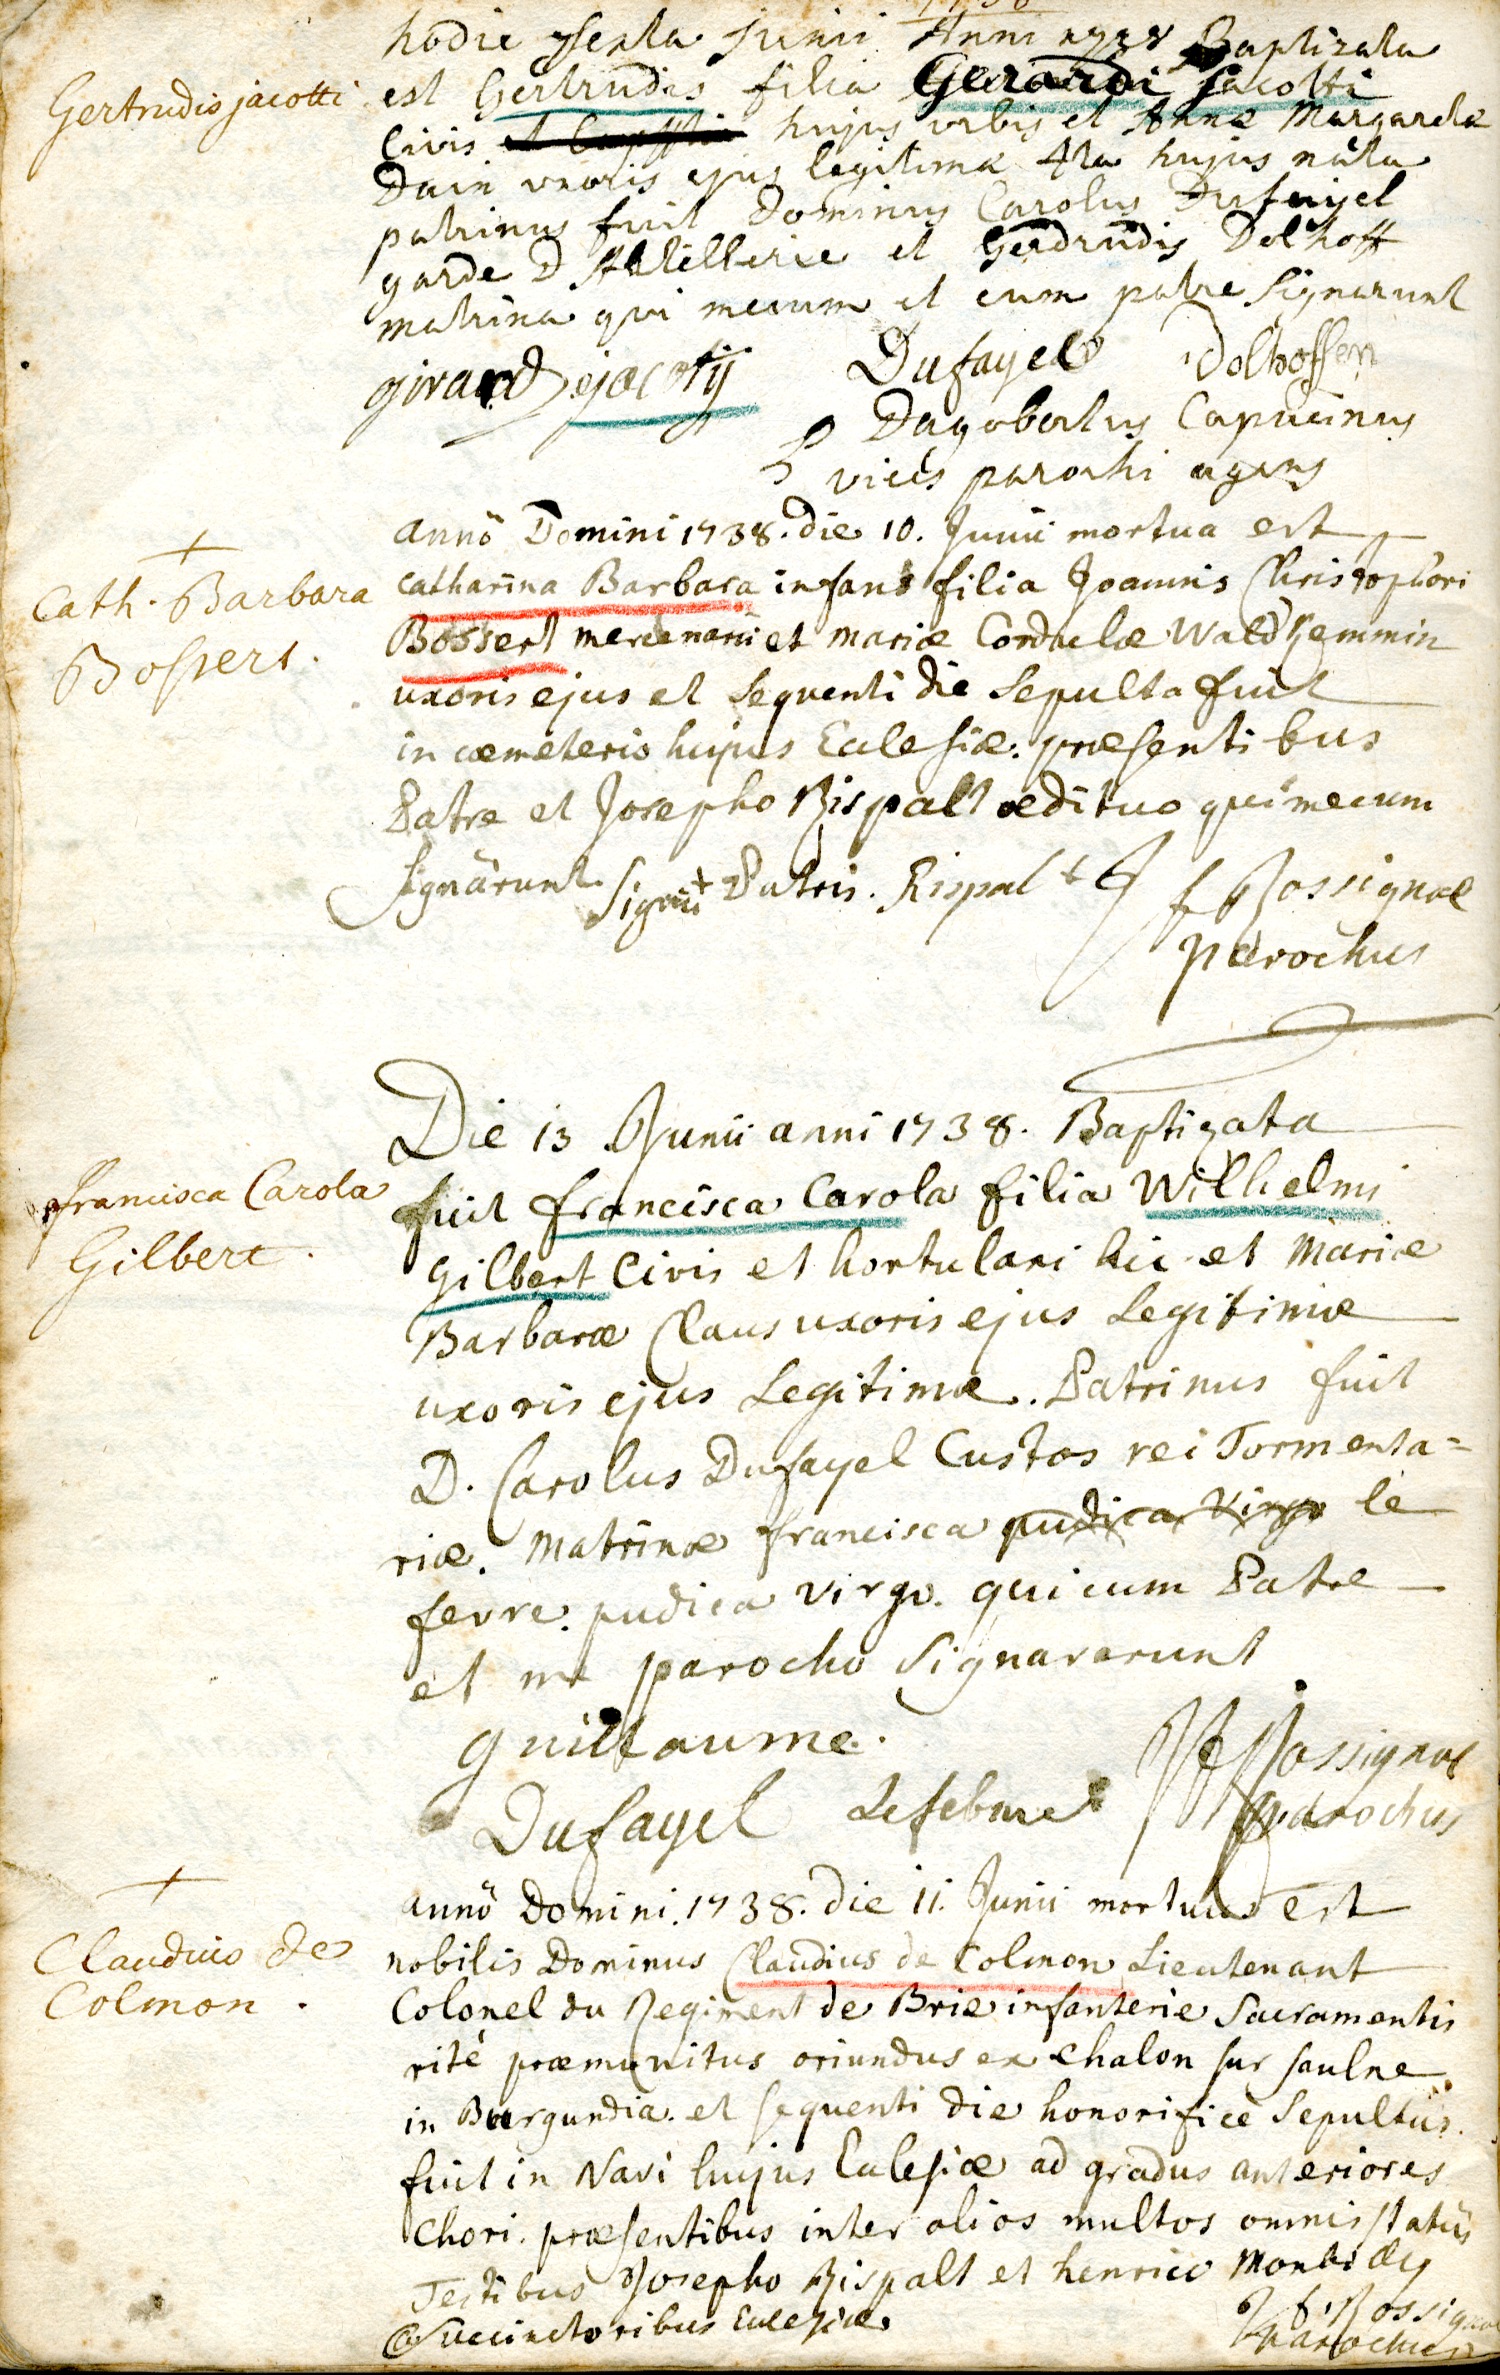 1738
hodie sexta Junii Anni 1738 Baptizata
Gertrudis jacotti
est Gertrudis filia Gerardi Jacotti
Civis hujus urbis et Annæ Margaretæ
Dain uxoris ejus legitimæ 4ta hujus nata
patrinus fuit Dominus Carolus Dufaijel
garde D'Artillerie et Gerdrudis Dolhoff
matrina qui mecum et cum patre signarunt
girard jacotij Dufayel Dolhoffen
Dagobertus Capucinus
vices parochi agens
annō Domini 1738. die 10. Junii mortua est
Cath. Barbara
Bossert.
catharina Barbara infans filia Joannis Christophori
Bossert mercenarii et mariæ Cordulæ Waldhemmin
uxoris ejus et sequenti die sepulta fuit
in cœmeterio hujus Eclesiæ. præsentibus
Patre et Josepho Rispalt ædituo qui mecum
signārunt. Signū + Patris. Rispalt f Rossignol
parochus
Die 13 Junii anni 1738. Baptizata
francisca Carola
Gilbert.
fuit francisca Carola filia Wilhelmi
Gilbert Civis et hortulani hic et Mariæ
Barbaræ Claus uxoris ejus Legitimæ
uxoris ejus Legitimæ. Patrinus fuit
D. Carolus Dufayel Custos rei Tormenta=
riæ. Matrinæ francisca pudica virgo le
fevre. pudica virgo. qui cum Patre
et me parocho signaverunt
guillaume.
Dufayel Lefebure f Rossignol
parochus
annō Domini. 1738. die 11. Junii mortuus est
Claudius de
Colmon.
nobilis Dominus Claudius de Colmon Lieutenant
Colonel du Regiment de Brie infanterie Sacramentis
ritè præmunitus oriundus ex chalon sur saulne
in Burgundia. et sequenti die honorificè Sepultus
fuit in Navi hujus Eclesiæ ad gradus anteriores
Chori. præsentibus inter alios multos omnis statūs
Testibus Josepho Rispalt et henrico
Succinctoribus Eclesiæ f. Rossignol
parochus